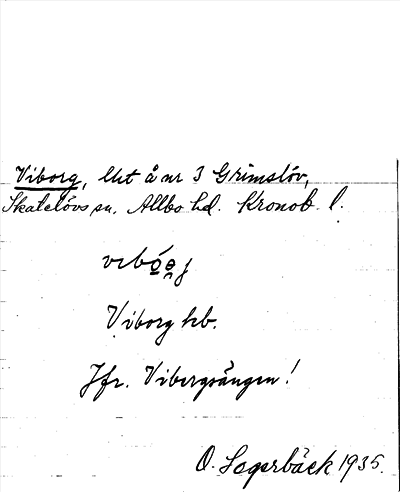 Viborg, lht å nr 3 Grimslöv,
Skatelövs sn. Allbo hd. Kronob. l.
Viborg hb.
Jfr. Vibergsängen!
O. Lagerbäck 1935.